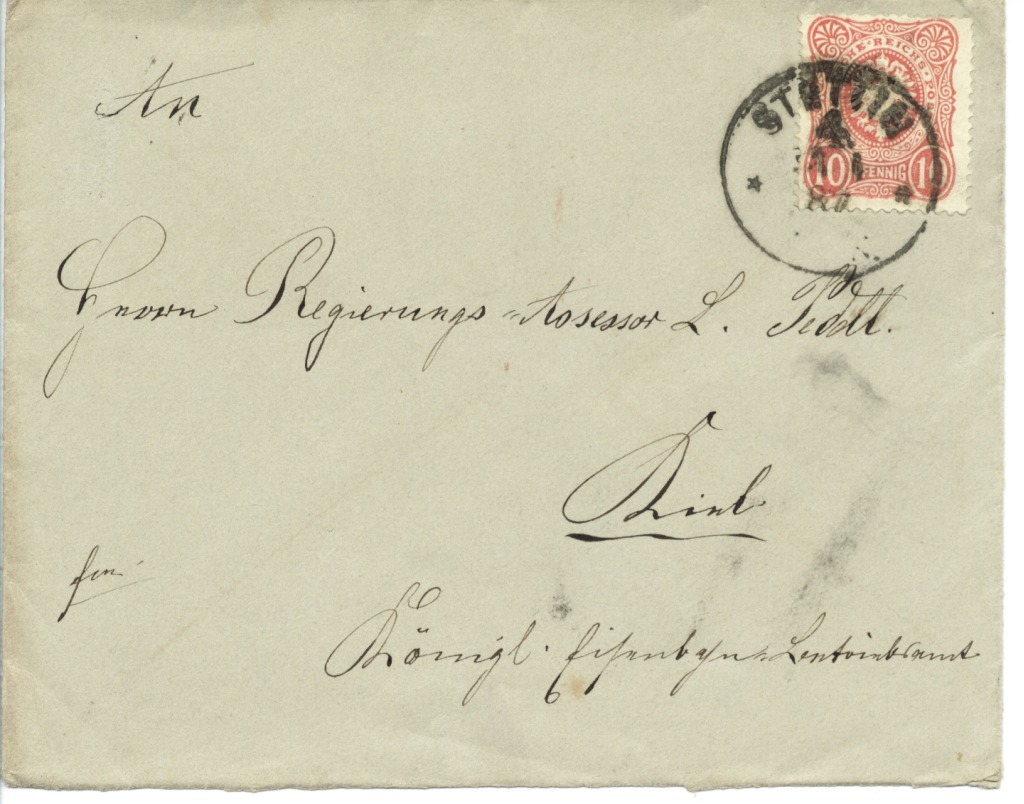 An
STETTIN
10 PFENNIG 10
Herrn Regierungs-Assessor L.
Kiel
Königl. Eisenbahn-Betriebsamt